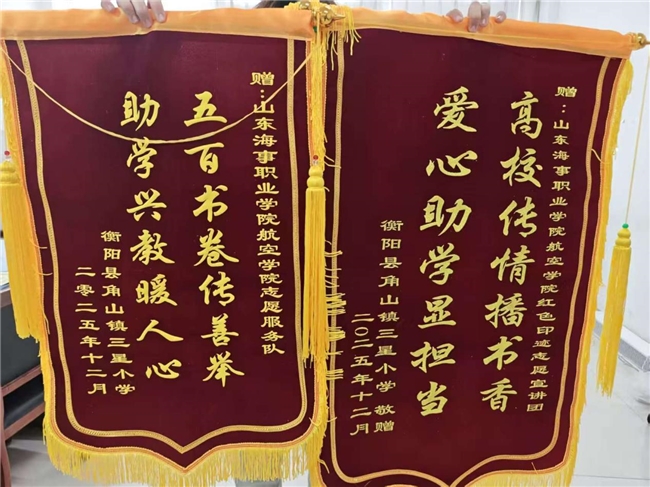 赠：山东海事职业学院航空学院志愿服务队
五百书卷传善举
助学兴教暖人心
衡阳县角山镇三星小学
二零二五年十二月
赠：山东海事职业学院航空学院红色印迹志愿宣讲团
高校传情播书香
爱心助学显担当
衡阳县角山镇三星小学 敬赠
二〇二五年十二月